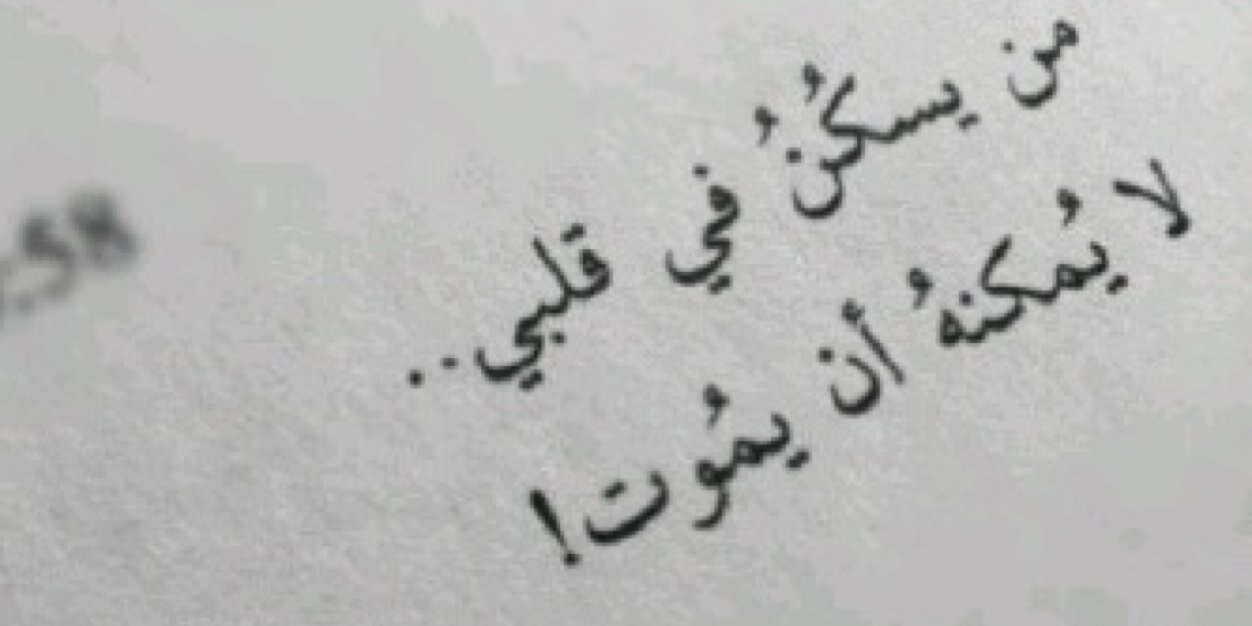 من يسكنُُ في قلبي..
لا يُمكنهُ أن يمُوت!